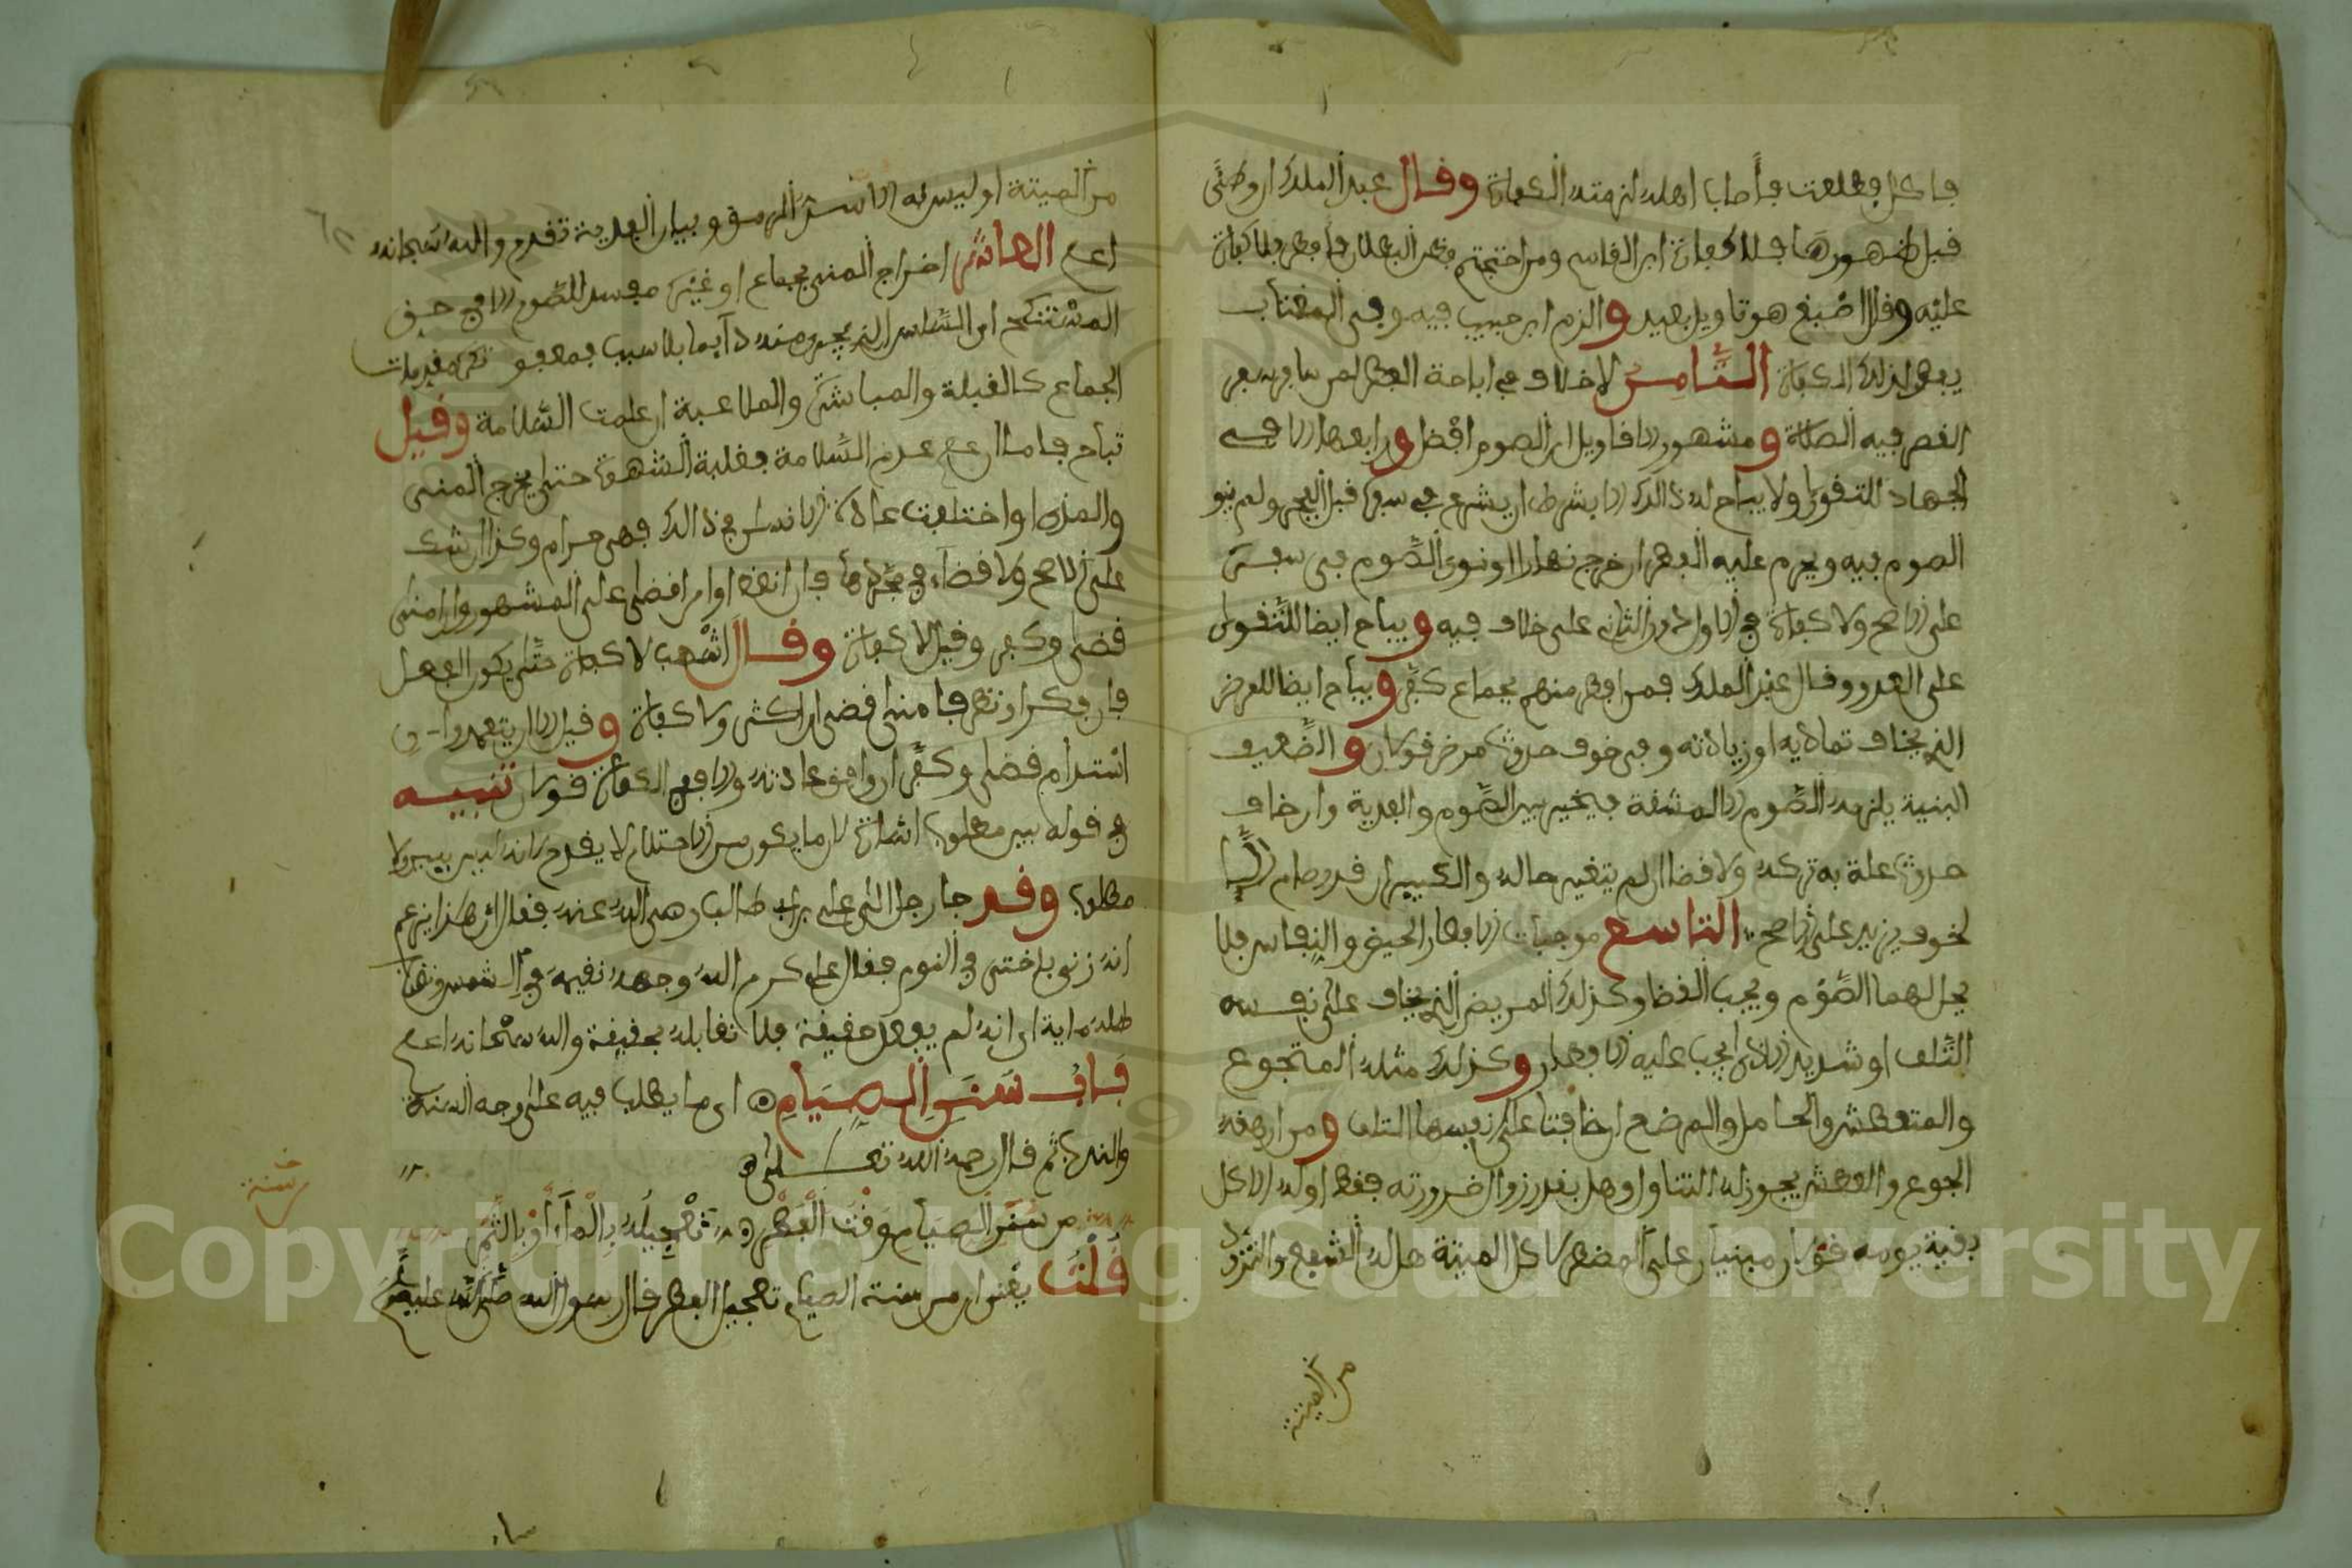 فأكل فطلعت فأصاب أهله لزمته الكفارة وقال عبد الملك ان وطئ
قبل ظهورها فلا كفارة ابن القاسم ومن احتجم فظن البطلان فأفطر فلا كفارة
عليه وقال اصبغ هو تاويل بعيد والزم ابن حبيب فيه وفى المغتاب
يفطر لذلك الكفارة الثامن لا خلاف في اباحة الفطر لمن سافر سفر
القصر فيه الصلاة ومشهور الاقاويل ان الصوم افضل ورابعها الا في
الجهاد للتقوى ولا يباح له ذالك الا بشرط ان يشرع في سفره قبل الفجر ولم ينو
الصوم فيه ويحرم عليه الفطر ان خرج نهارا او نوى الصوم فى سفره
على الاصح ولا كفارة في الاول دون الثانى على خلاف فيه ويباح ايضا للتقوى
على العدو وقال عبد الملك فمن افطر منهم بجماع كفر ويباح ايضا للمرض
الذى يخاف تماديه او زيادته وفى خوف حدوث مرض قولان والضعيف
البنية يلزمه الصوم الا لمشقة فيخير بين الصوم والفدية وان خاف
حدوث علة به تركه ولا قضا ان لم يتغير حاله والكبير ان قدر صام والا
لخوف يزيد على الاصح التاسع موجبات الافطار الحيض والنفاس فلا
يحل لهما الصوم ويجب القضا وكذلك المريض الذى يخاف على نفسه
التلف او شديد الاذى يجب عليه الافطار وكذلك مثله المتجوع
والمتعطش والحامل والمرضع ان خافتا على نفسهما التلف ومن ارهقه
الجوع والعطش يجوز له التناول وهل بقدر زوال ضرورته فقط او له الاكل
بقية يومه قولان مبنيان على المضطر لاكل الميتة هل له الشبع والتزود
من الميتة
من الميتة او ليس له الا سد الرمق وبيان الفدية تقدم والله سبحانه
اعلم العاشر اخراج المنى بجماع او غيره مفسد للصوم الا في حق
المستنكح اى السلس الذى يخرج منه دائما بلا سبب فمعفو ثم مقدمات
الجماع كالقبلة والمباشرة والملاعبة ان علمت السلامة وقيل
تباح فاما ان علم عدم السلامة بغلبة الشهوة حتى يخرج المنى
والمذى او اختلفت عادة الانسان في ذالك فهى حرام وكذا ان شك
على الاصح ولا قضاء في مجردها فان انعظ او امذى قضى على المشهور وان امنى
قضى وكفر وقيل لا كفارة وقال اشهب لا كفارة حتى يكون الفعل
فان فكر او نظر فامنى قضى ان اكثر ولا كفارة وقيل الا ان يتعمد وان
استدام قضى وكفر ان وافق عادته والا ففى الكفارة قولان تنبيه
في قوله بين مطلوب اشارة لان ما يكون من الاحتلام لا يقدح لانه ليس بين ولا
مطلوب وقد جا رجل الى على بن ابى طالب رضى الله عنه فقال ان هذا يزعم
انه زنى باختى في النوم فقال على كرم الله وجهه نقيمه في الشمس ونضرب
ظله مائة اى انه لم يفعل حقيقة فلا نقابله بحقيقة والله سبحانه اعلم
باب سنن الصيام اى ما يطلب فيه على وجه السنة
والندب ثم قال رحمه الله تعالى
من سنن الصيام وقت الفطر تعجيله بالماء أو بالتمر
قلت يعنى ان من سنة الصيام تعجيل الفطر قال رسول الله صلى الله عليه وسلم
من سنة
Copyright © King Saud University